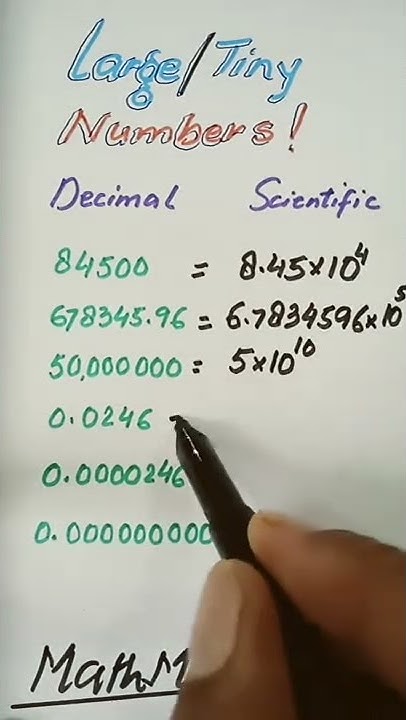 Large/Tiny
Numbers!
Decimal Scientific
84500 = 8.45×10⁴
678345.96 = 6.7834596×10⁵
50,000000 = 5×10¹⁰
0.0246 -
0.0000246
0.000000000
Math M